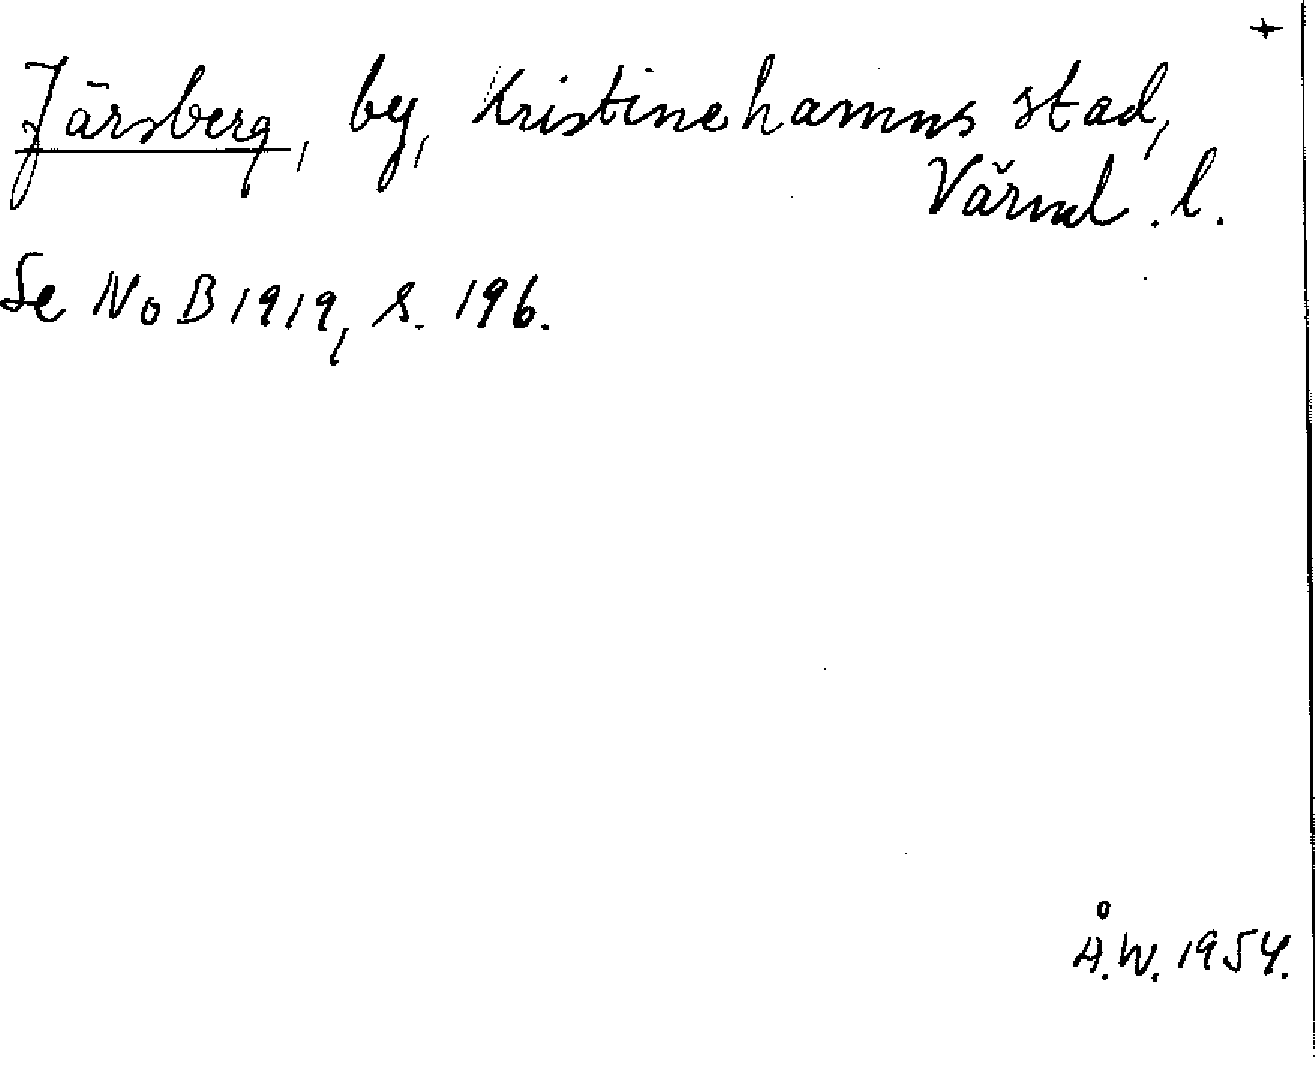 +
Järsberg, by, Kristinehamns stad,
Värml. l.
Se NoB 1919, s. 196.
Å.W. 1954.